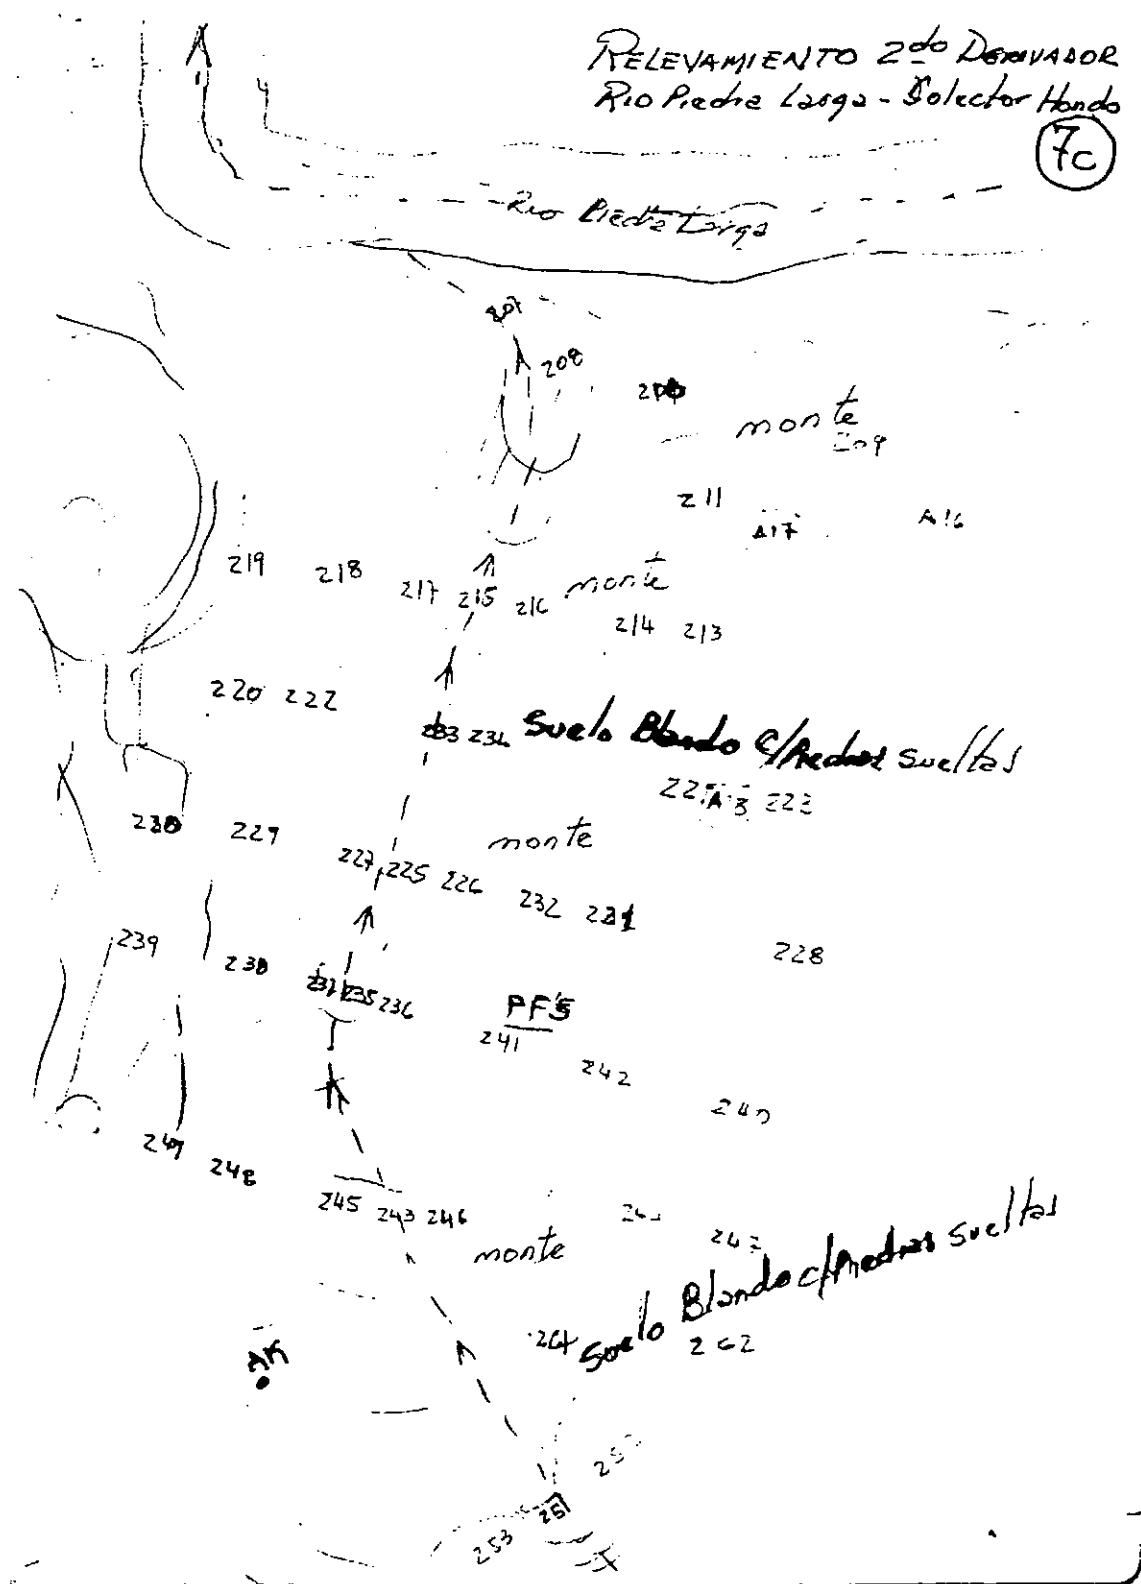 RELEVAMIENTO 2do DERIVADOR
Rio Piedra Larga - Colector Hondo
7c
Rio Piedra Larga
207
208
monte
209
211
A17 A16
219 218 217 215 216 monte
214 213
220 222
233 234 Suelo Blando c/Piedras sueltas
223
230 229 monte
227 225 226 232 231
228
239 238 237 235 236 PF5
241
242
240
249 248
245 243 246
242
monte
264 Suelo Blando c/Piedras sueltas
262
253 251